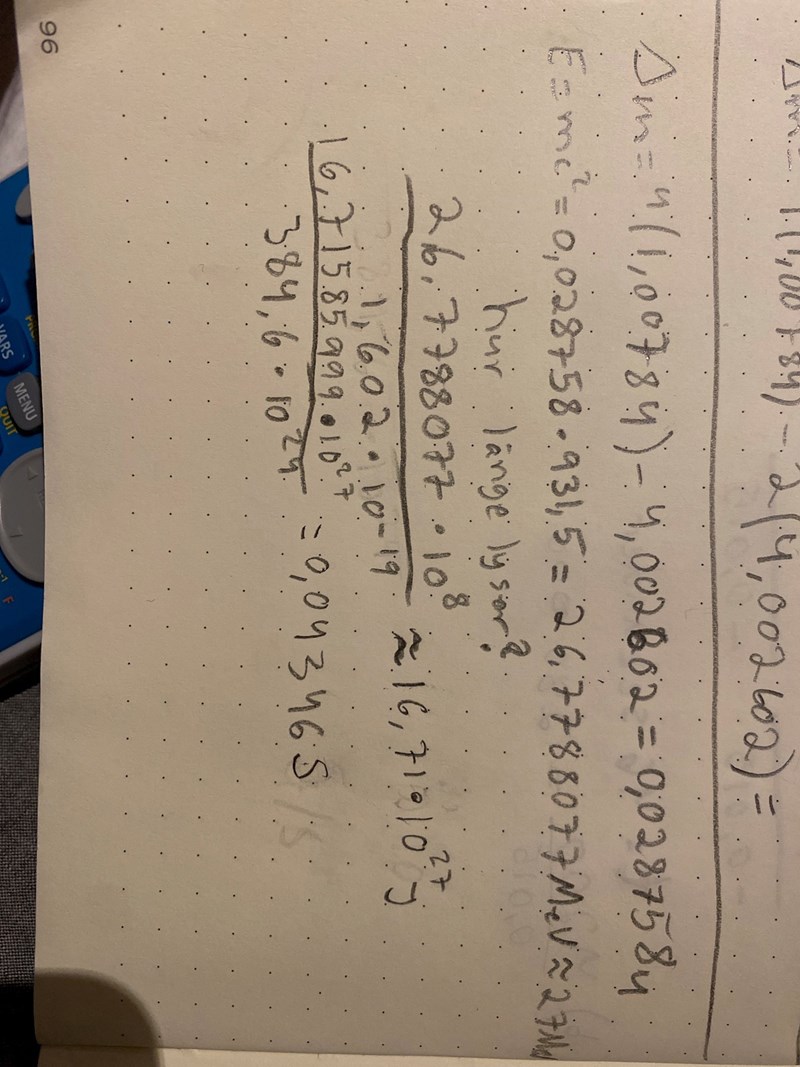 Δm = 4(1,00784) - 2(4,002602) =
Δm = 4(1,00784) - 4,002602 = 0,028758u
E = mc² = 0,028758 · 931,5 = 26,7788077 MeV ≈ 27 MeV
hur länge lyser?
26,7788077 · 10⁸
1,602 · 10⁻¹⁹
≈ 16,71 · 10²⁷ J
16,71585999 · 10²⁷
384,6 · 10²⁴
= 0,04346 s
96
VARS
MENU
QUIT
F